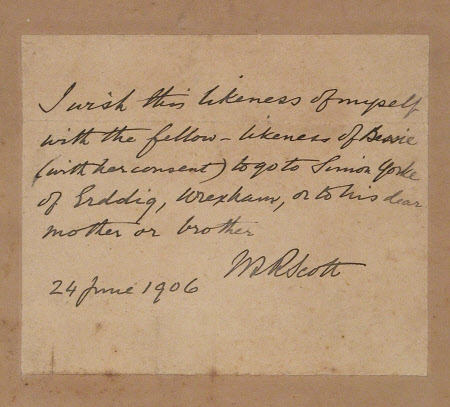 I wish this likeness of myself
with the fellow-likeness of Bessie
(with her consent) to go to Simon Yorke
of Erddig, Wrexham, or to his dear
mother or brother
24 June 1906 MRScott